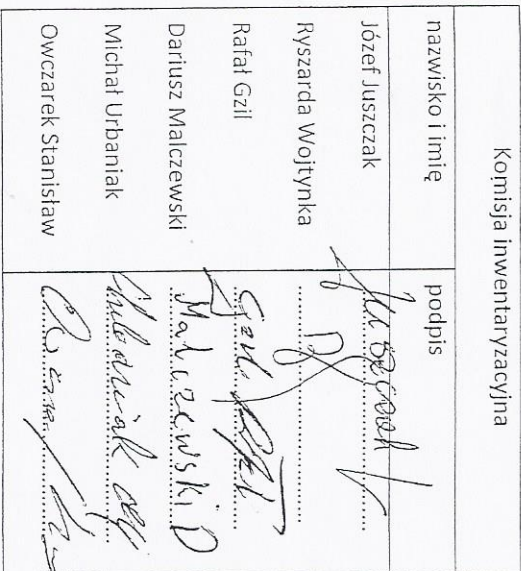 Komisja inwentaryzacyjna
nazwisko i imię podpis
Józef Juszczak Juszczak J
Ryszarda Wojtynka
Rafał Gzil Gzil Rafał
Dariusz Malczewski Malczewski D
Michał Urbaniak Urbaniak
Owczarek Stanisław